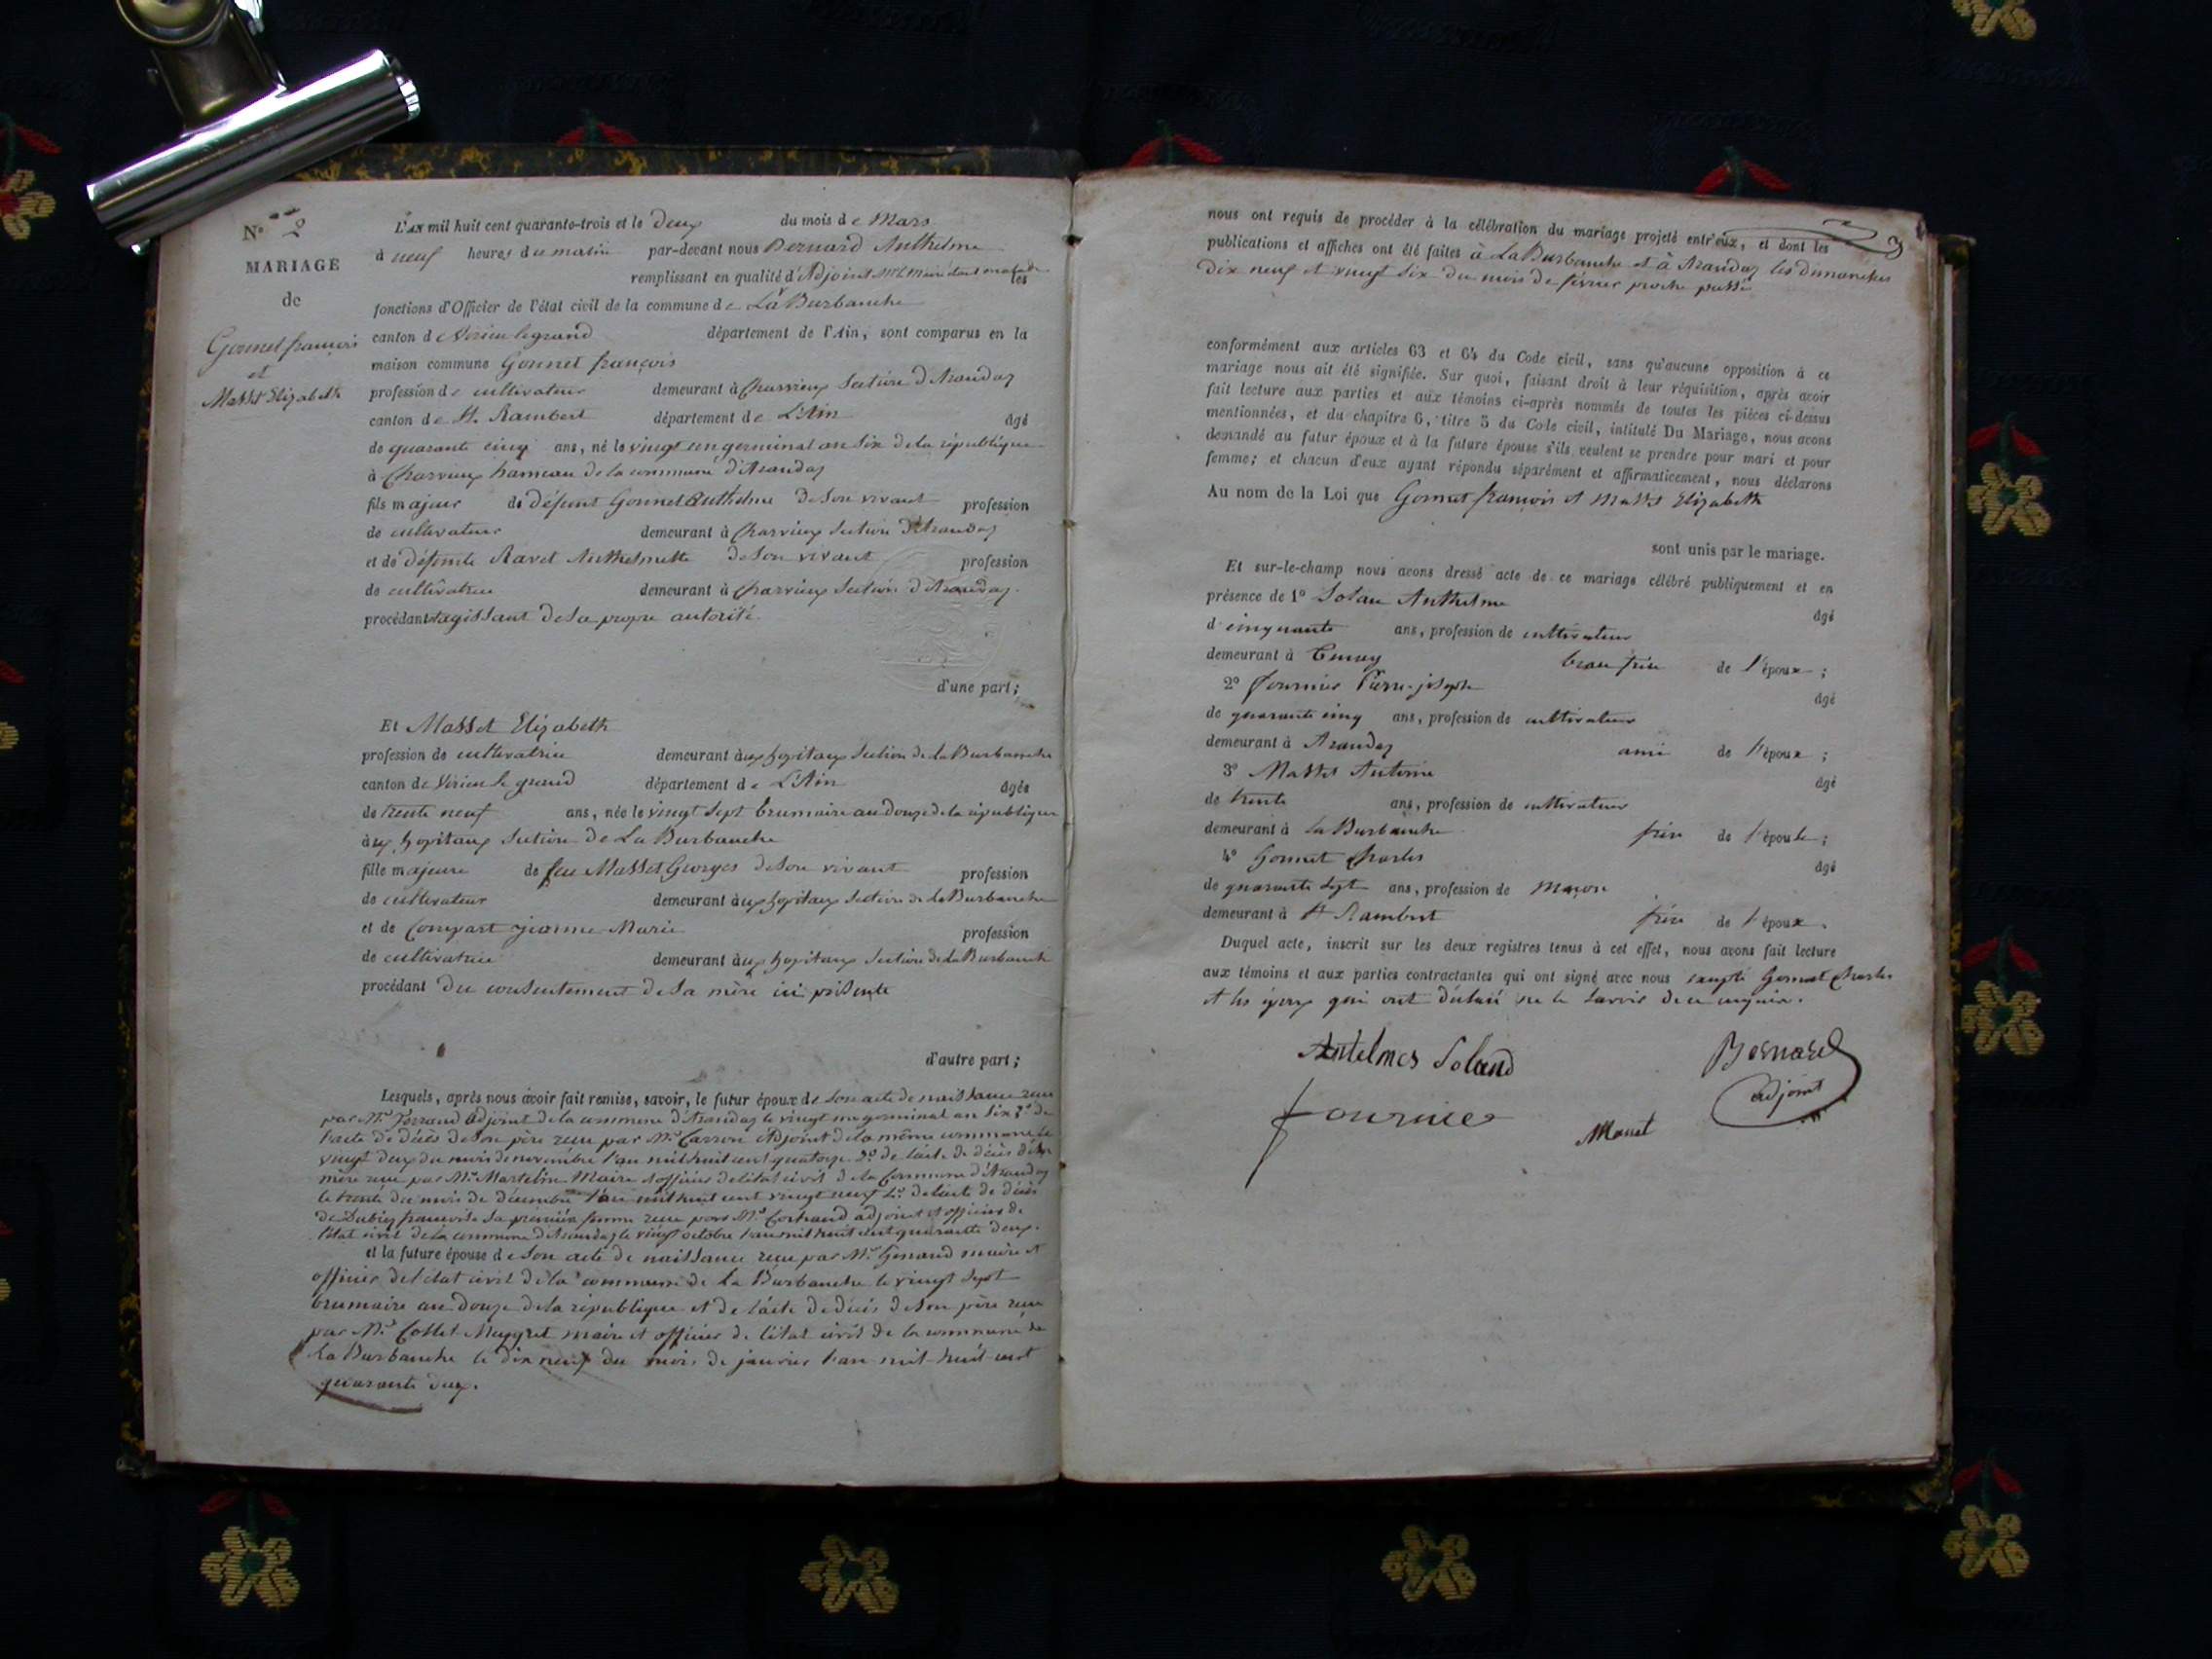 N° 2
MARIAGE
de
Gonnet françois
et
Masset Elizabeth
L'AN mil huit cent quarante-trois et le deux du mois de Mars
à neuf heures du matin par-devant nous Bernard Anthelme
remplissant en qualité d'Adjoint Mr le Maire étant malade les
fonctions d'Officier de l'état civil de la commune de La Burbanche
canton de Virieu legrand département de l'Ain, sont comparus en la
maison commune Gonnet françois
profession de cultivateur demeurant à Charvieux Section d'Arandaz
canton de St. Rambert département de L'Ain âgé
de quarante cinq ans, né le vingt un germinal an six de la république
à Charvieux hameau de la commune d'Arandaz
fils majeur de défunt Gonnet Anthelme de son vivant profession
de cultivateur demeurant à Charvieux Section d'Arandaz
et de défunte Ravet Anthelmette de son vivant profession
de cultivatrice demeurant à Charvieux Section d'Arandaz.
procédant et agissant de sa propre autorité.
d'une part;
Et Masset Elizabeth
profession de cultivatrice demeurant aux hopitaux Section de La Burbanche
canton de Virieu le grand département de L'Ain âgée
de trente neuf ans, née le vingt sept brumaire an douze de la république
aux hopitaux Section de La Burbanche
fille majeure de feu Masset Georges de son vivant profession
de cultivateur demeurant aux hopitaux Section de La Burbanche
et de Compart jeanne-Marie profession
de cultivatrice demeurant aux hopitaux Section de La Burbanche
procédant du consentement de sa mère ici présente
d'autre part;
Lesquels, après nous avoir fait remise, savoir, le futur époux de son acte de naissance reçu
par Mr. Ferrand Adjoint de la commune d'Arandaz le vingt un germinal an six 2° de
l'acte de décès de son père reçu par Mr. Carron Adjoint de la même commune le
vingt deux du mois de novembre l'an mil huit cent quatorze 3° de l'acte de décès de sa
mère reçu par Mr. Martelin Maire et officier de l'état civil de la Commune d'Arandaz
le trente du mois de décembre l'an mil huit cent vingt neuf 4° de l'acte de décès
de Dubiez françoise sa première femme reçu par Mr. adjoint et officier de
l'état civil de la commune d'Arandaz le vingt octobre l'an mil huit cent quarante deux.
et la future épouse de son acte de naissance reçu par Mr. maire et
officier de l'état civil de la commune de La Burbanche le vingt sept
brumaire an douze de la république et de l'acte de décès de son père reçu
par Mr. Collet Meygret maire et officier de l'état civil de la commune de
La Burbanche le dix neuf du mois de janvier l'an mil-huit-cent
quarante deux.
3
nous ont requis de procéder à la célébration du mariage projeté entr'eux, et dont les
publications et affiches ont été faites à La Burbanche et à Arandaz les dimanches
dix neuf et vingt six du mois de février proche passé
conformément aux articles 63 et 64 du Code civil, sans qu'aucune opposition à ce
mariage nous ait été signifiée. Sur quoi, faisant droit à leur réquisition, après avoir
fait lecture aux parties et aux témoins ci-après nommés de toutes les pièces ci-dessus
mentionnées, et du chapitre 6, titre 5 du Code civil, intitulé Du Mariage, nous avons
demandé au futur époux et à la future épouse s'ils veulent se prendre pour mari et pour
femme; et chacun d'eux ayant répondu séparément et affirmativement, nous déclarons
Au nom de la Loi que Gonnet françois et Masset Elizabeth
sont unis par le mariage.
Et sur-le-champ nous avons dressé acte de ce mariage célébré publiquement et en
présence de 1° Solan Anthelme âgé
d'cinquante ans, profession de cultivateur
demeurant à Tenay beau frère de l'époux;
2° fournier Pierre-joseph âgé
de quarante cinq ans, profession de cultivateur
demeurant à Arandaz ami de l'époux;
3° Masset Antoine âgé
de trente ans, profession de cultivateur
demeurant à la Burbanche frère de l'épouse;
4° Gonnet Charles âgé
de quarante sept ans, profession de Maçon
demeurant à St Rambert frère de l'époux.
Duquel acte, inscrit sur les deux registres tenus à cet effet, nous avons fait lecture
aux témoins et aux parties contractantes qui ont signé avec nous excepté Gonnet Charles
et les époux qui ont déclaré ne le savoir de ce enquis.
Antelmes Soland
Bernard
adjoint
fournier
Masset